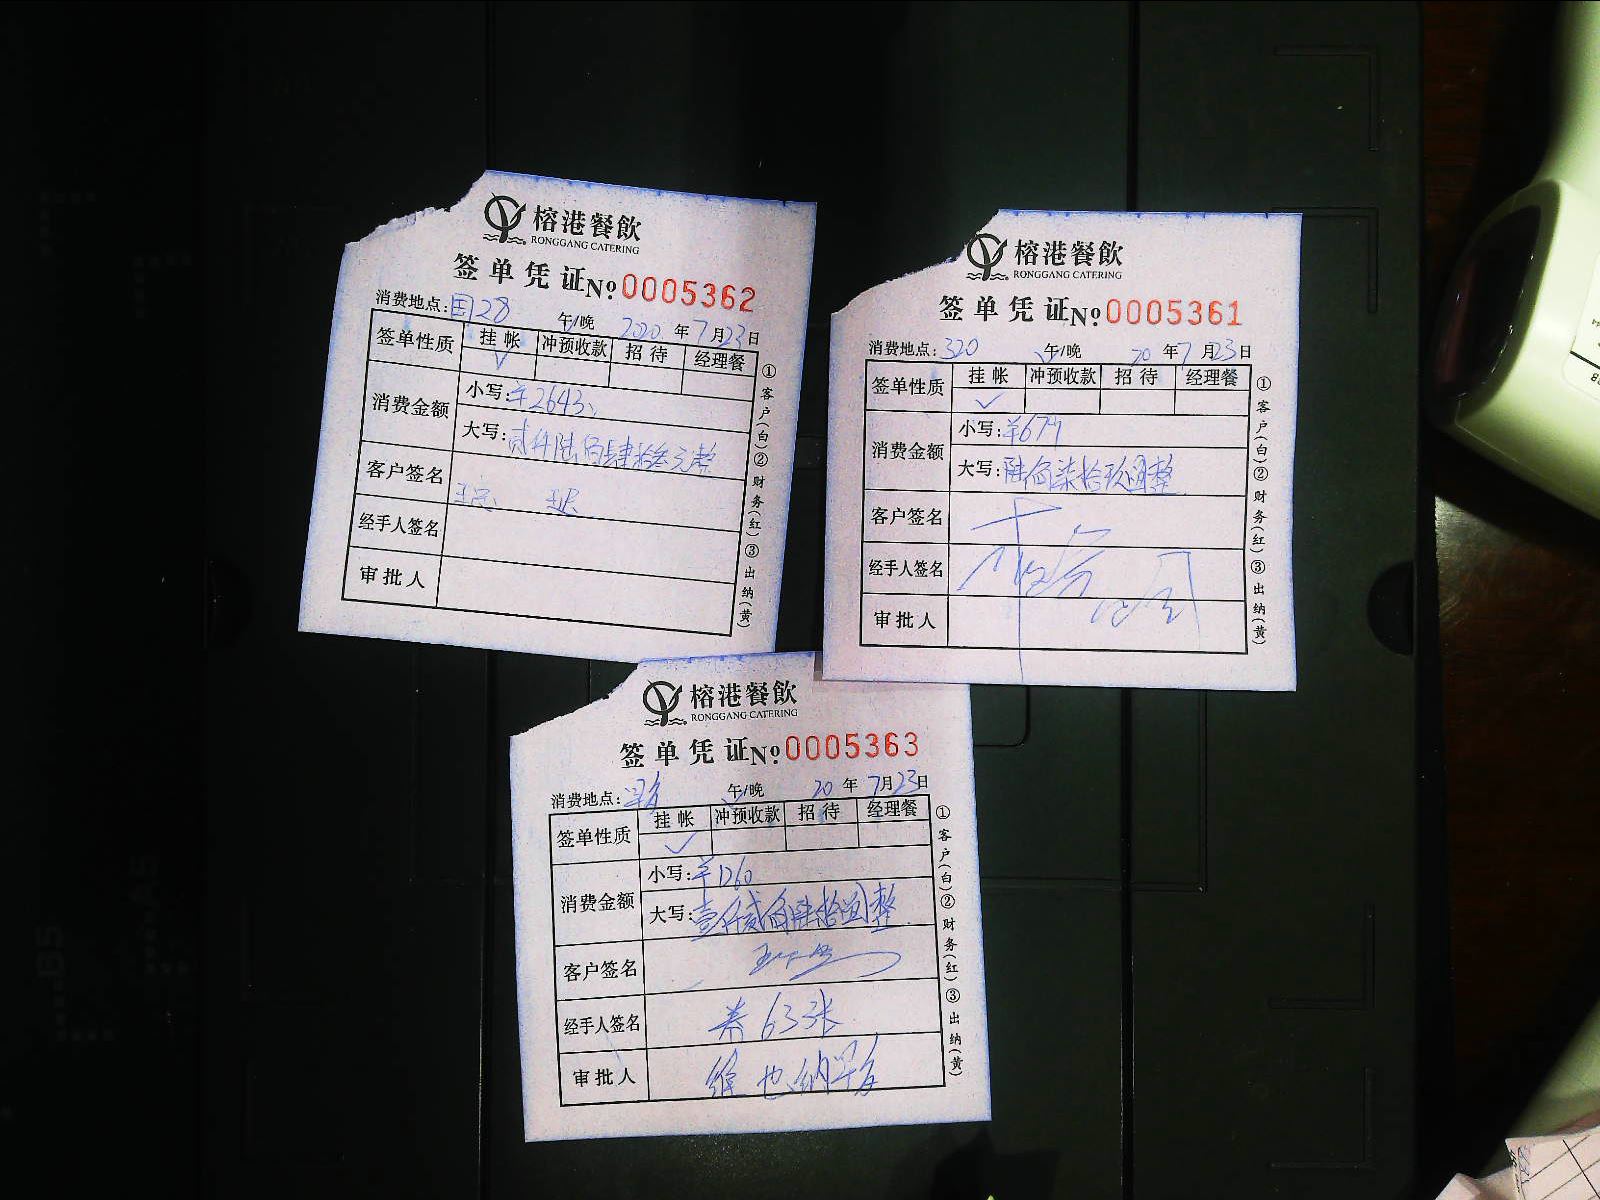 榕港餐飲
RONGGANG CATERING
签单凭证 No 0005362
消费地点:国28 午/晚 2020年7月23日
签单性质 挂帐 冲预收款 招待 经理餐
消费金额
小写:¥2643
大写:贰仟陆佰肆拾叁元整
客户签名
经手人签名
审批人
①客户(白)②财务(红)③出纳(黄)
榕港餐飲
RONGGANG CATERING
签单凭证 No 0005361
消费地点:320 午/晚 20年7月23日
签单性质 挂帐 冲预收款 招待 经理餐
消费金额
小写:¥679
大写:陆佰柒拾玖圆整
客户签名
经手人签名
审批人
①客户(白)②财务(红)③出纳(黄)
榕港餐飲
RONGGANG CATERING
签单凭证 No 0005363
消费地点: 午/晚 20年7月23日
签单性质 挂帐 冲预收款 招待 经理餐
消费金额
小写:¥1260
大写:壹仟贰佰陆拾圆整
客户签名
经手人签名 券63张
审批人 维也纳
①客户(白)②财务(红)③出纳(黄)
B5
A5